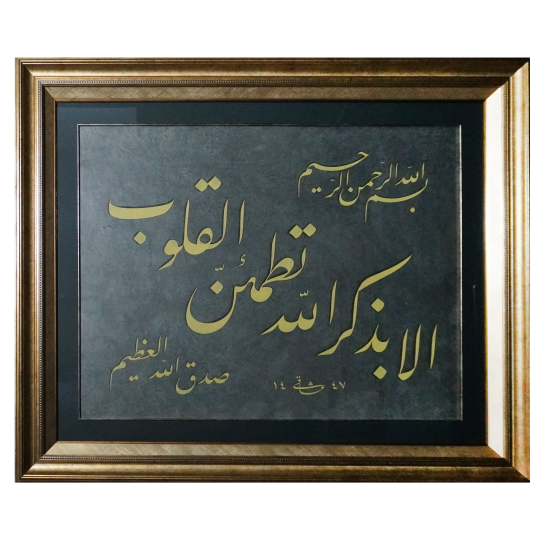 بسم الله الرحمن الرحيم
الا بذكر الله تطمئنّ القلوب
صدق الله العظيم
١٤ مشقى ٤٧